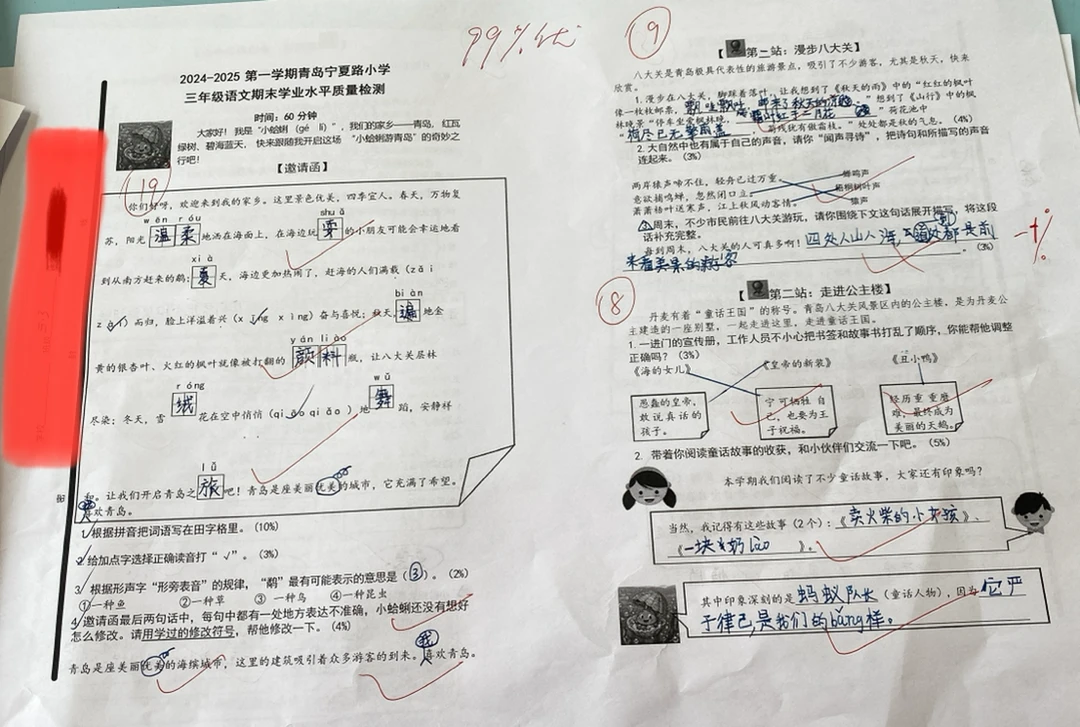 99% 优
2024-2025 第一学期青岛宁夏路小学
三年级语文期末学业水平质量检测
时间：60 分钟
大家好！我是“小蛤蜊（gé lí）”，我们的家乡——青岛，红瓦
绿树、碧海蓝天，快来跟随我开启这场“小蛤蜊游青岛”的奇妙之
行吧！
【邀请函】
19
你们好呀，欢迎来到我的家乡。这里景色优美，四季宜人。春天，万物复
wēn róu
shuǎ
苏，阳光温柔地洒在海面上，在海边玩耍的小朋友可能会幸运地看
xià
到从南方赶来的鹬；夏天，海边更加热闹了，赶海的人们满载（zǎi
biàn
zài）而归，脸上洋溢着兴（xīng xìng）奋与喜悦；秋天，遍地金
yán liào
黄的银杏叶、火红的枫叶就像被打翻的颜料瓶，让八大关层林
róng
wǔ
尽染；冬天，雪绒花在空中悄悄（qiāo qiǎo）地舞蹈，安静祥
lǚ
和。让我们开启青岛之旅吧！青岛是座美丽优美的城市，它充满了希望。
喜欢青岛。
1、根据拼音把词语写在田字格里。（10%）
2、给加点字选择正确读音打“√”。（3%）
3、根据形声字“形旁表音”的规律，“鹬”最有可能表示的意思是（③）。（2%）
①一种鱼 ②一种草 ③ 一种鸟 ④一种昆虫
4、邀请函最后两句话中，每句中都有一处地方表达不准确，小蛤蜊还没有想好
怎么修改。请用学过的修改符号，帮他修改一下。（4%）
我
青岛是座美丽优美的海滨城市，这里的建筑吸引着众多游客的到来。喜欢青岛。
9
【第二站：漫步八大关】
八大关是青岛极具代表性的旅游景点，吸引了不少游客，尤其是秋天，快来
欣赏。
1. 漫步在八大关，脚踩着落叶，让我想到了《秋天的雨》中的“红红的枫叶
像一枚枚邮票，飘哇飘哇，邮来了秋天的凉爽。”想到了《山行》中的枫
林晚景“停车坐爱枫林晚，霜叶红于二月花。”荷花池中
“荷尽已无擎雨盖，菊残犹有傲霜枝。”处处都是秋的气息。（4%）
2. 大自然中也有属于自己的声音，请你“闻声寻诗”，把诗句和所描写的声音
连起来。（3%）
两岸猿声啼不住，轻舟已过万重。 蝉鸣声
意欲捕鸣蝉，忽然闭口立。 梧桐树叶声
萧萧梧叶送寒声，江上秋风动客情。 猿声
3、周末，不少市民前往八大关游玩，请你围绕下文这句话展开描写，将这段
话补充完整。
每到周末，八大关的人可真多啊！四处人山人海，到处都是前
来看美景的游客。（3%）
-1%
8
【第二站：走进公主楼】
丹麦有着“童话王国”的称号。青岛八大关风景区内的公主楼，是为丹麦公
主建造的一座别墅，一起走进这里，走进童话王国。
1. 一进门的宣传册，工作人员不小心把书签和故事书打乱了顺序，你能帮他调整
正确吗？（3%）
《海的女儿》 《皇帝的新装》 《丑小鸭》
愚蠢的皇帝，
敢说真话的
孩子。
宁可牺牲自
己，也要为王
子祝福。
经历重重磨
难，最终成为
美丽的天鹅。
2. 带着你阅读童话故事的收获，和小伙伴们交流一下吧。（5%）
本学期我们阅读了不少童话故事，大家还有印象吗？
当然，我记得有这些故事（2 个）：《卖火柴的小女孩》、
《一块奶lào》。
其中印象深刻的是蚂蚁队长（童话人物），因为它严
于律己，是我们的bǎng样。